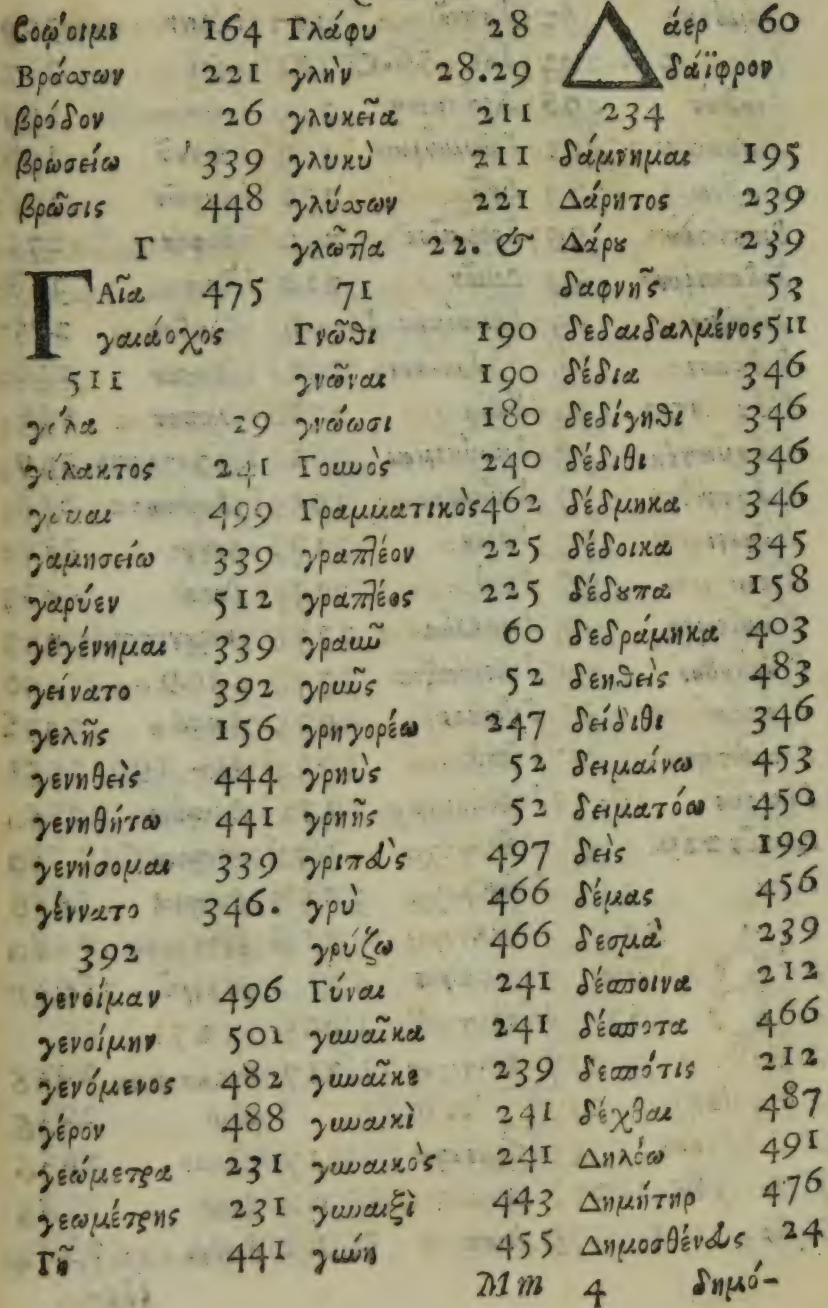 Βοῷοιμι 164
Βράσσων 221
βρόδον 26
βρωσείω 339
βρῶσις 448
Γ
ΓΑῖα 475
γαιάοχος
511
γάλα 29
γάλακτος 241
γάναι 499
γαμησείω 339
γαρύεν 512
γεγένημαι 339
γείνατο 392
γελῆς 156
γενηθεὶς 444
γενηθήτω 441
γενήσομαι 339
γέννατο 346.
392
γενοίμαν 496
γενοίμην 501
γενόμενος 482
γέρον 488
γεώμετρα 231
γεωμέτρης 231
Γῆ 441
Γλάφυ 28
γλὴν 28.29
γλυκεῖα 211
γλυκὺ 211
γλύσσων 221
γλῶττα 22. &
71
Γνῶθι 190
γνῶναι 190
γνώωσι 180
Γουνὸς 240
Γραμματικὸς 462
γραπτέον 225
γραπτέος 225
γραῦ 60
γραῦς 52
γρηγορέω 247
γρηὺς 52
γρηῦς 52
γριπεὺς 497
γρὺ 466
γρύζω 466
Γύναι 241
γυναῖκα 241
γυναῖκε 239
γυναικὶ 241
γυναικὸς 241
γυναιξὶ 443
γυνή 455
Δάερ 60
δαΐφρον
234
δάμνημαι 195
Δάρητος 239
Δάρου 239
δαφνῆς 53
δεδαιδαλμένος 511
δέδια 346
δεδίγηθι 346
δέδιθι 346
δέδμηκα 346
δέδοικα 345
δέδουπα 158
δεδράμηκα 403
δεηθεὶς 483
δείδιθι 346
δειμαίνω 453
δειματόω 450
δεὶς 199
δέμας 456
δεσμὰ 239
δέσποινα 212
δέσποτα 466
δεσπότις 212
δέχθαι 487
Δηλέω 491
Δημήτηρ 476
Δημοσθένευς 24
Mm 4 δημό-